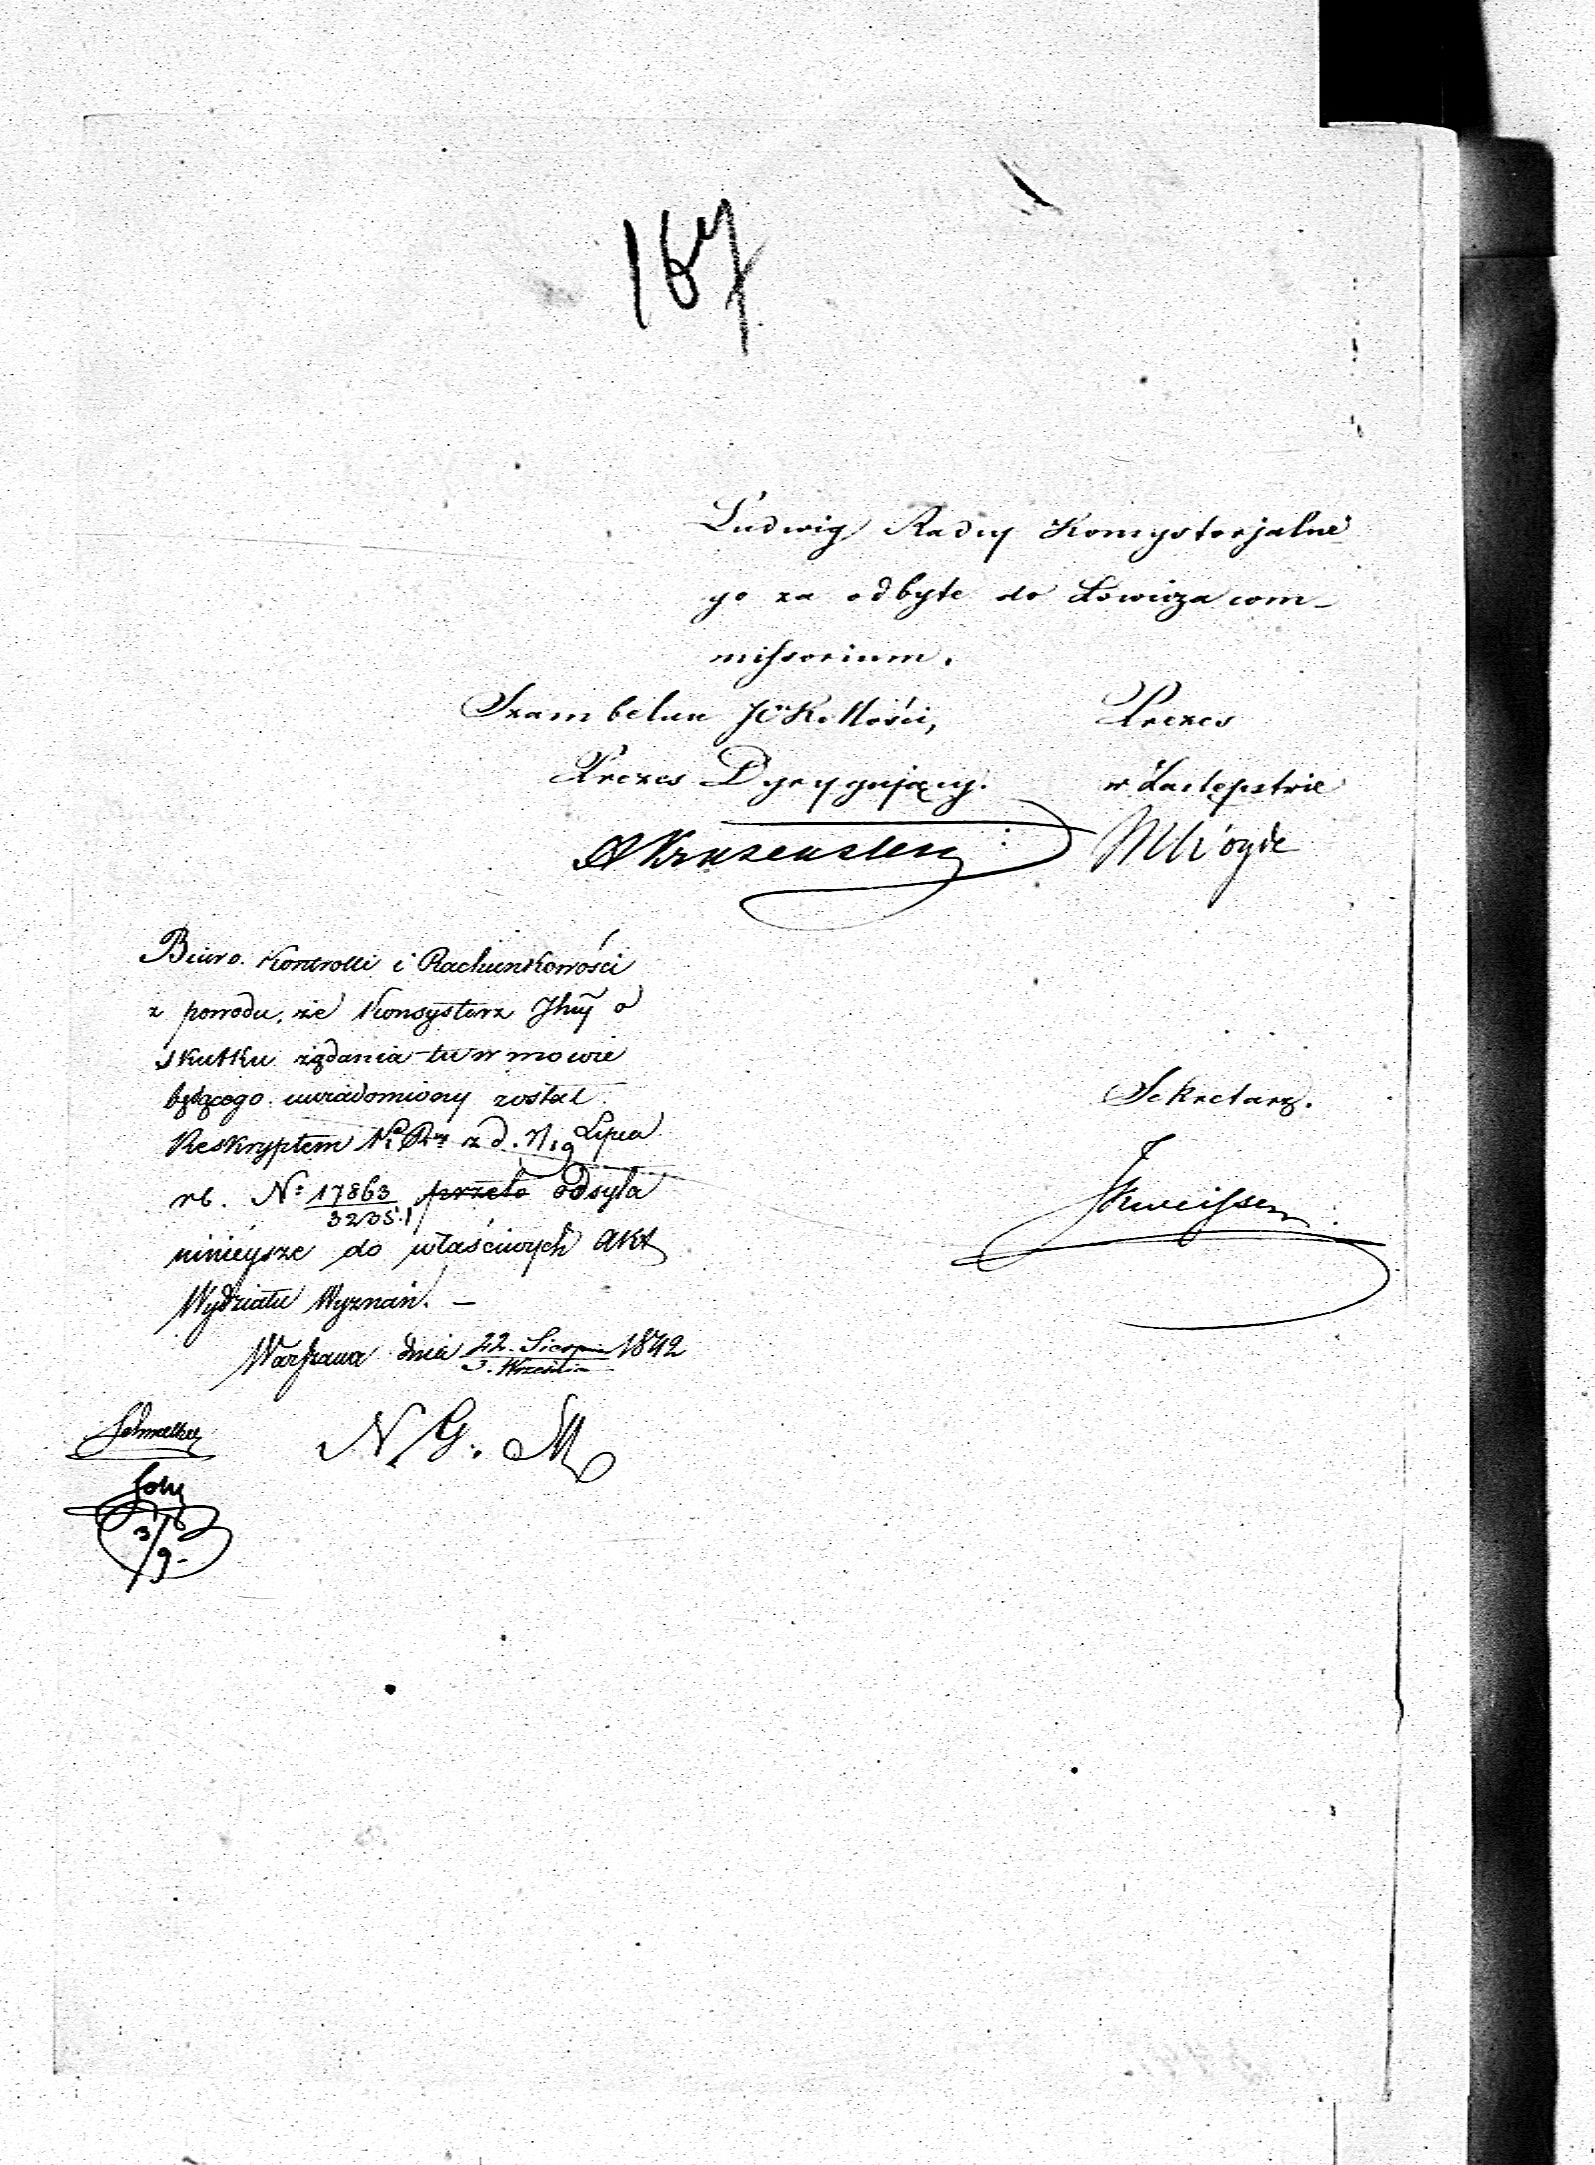 167
Ludwig Radcy Konsystorjalne
go za odbyte do Łowicza com-
missorium.
Szambelan JCKMości,
Prezes Dyrygujący.
Prezes
w Zastępstwie
Biuro Kontrolli i Rachunkowości
z powodu, że Konsystorz Jlny o
skutku żądania tu w mowie
będącego uwiadomiony został
Reskryptem z d. 7/19 Lipca
rb. No 17863/3235.1 przeto odsyła
ninieysze do właściwych Akt
Wydziału Wyznań. —
Warszawa dnia 22. Sierpnia/3. Września 1842
N. G. M
3/9
Sekretarz.